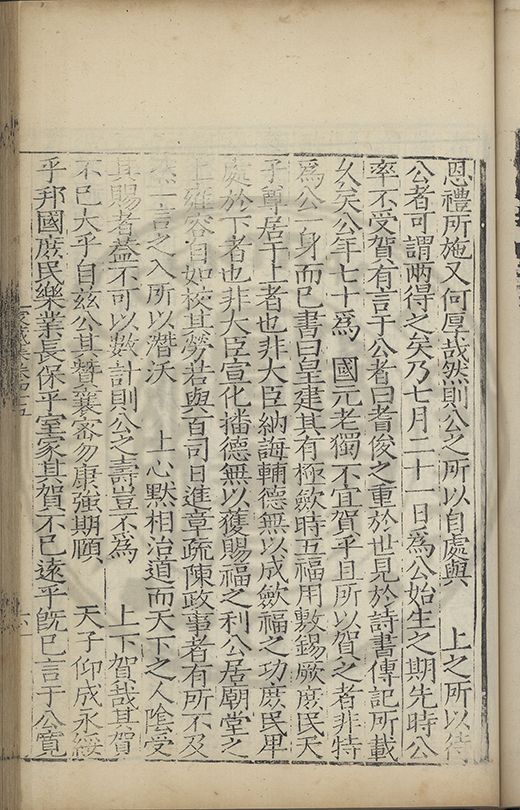 恩禮所施又何厚哉然則公之所以自處與　上之所以待
公者可謂兩得之矣乃七月二十一日為公始生之期先時公
率不受賀有言于公者曰耆俊之重於世見於詩書傳記所載
久矣公年七十爲　國元老獨不宜賀乎且所以賀之者非特
爲公一身而已書曰皇建其有極歛時五福用敷錫厥庶民天
子尊居于上者也非大臣納誨輔德無以成歛福之功庶民畢
處於下者也非大臣宣化播德無以獲賜福之利公居廟堂之
上雍容自如校其勞若與百司日進章疏陳政事者有所不及
然一言之入所以潛沃　上心默相治道而天下之人陰受
其賜者蓋不可以數計則公之壽豈不為　上下賀哉其賀
不已大乎自茲公其贊襄宻勿康強期頤　天子仰成永綏
乎邦國庶民樂業長保乎室家其賀不已遠乎旣已言于公覽